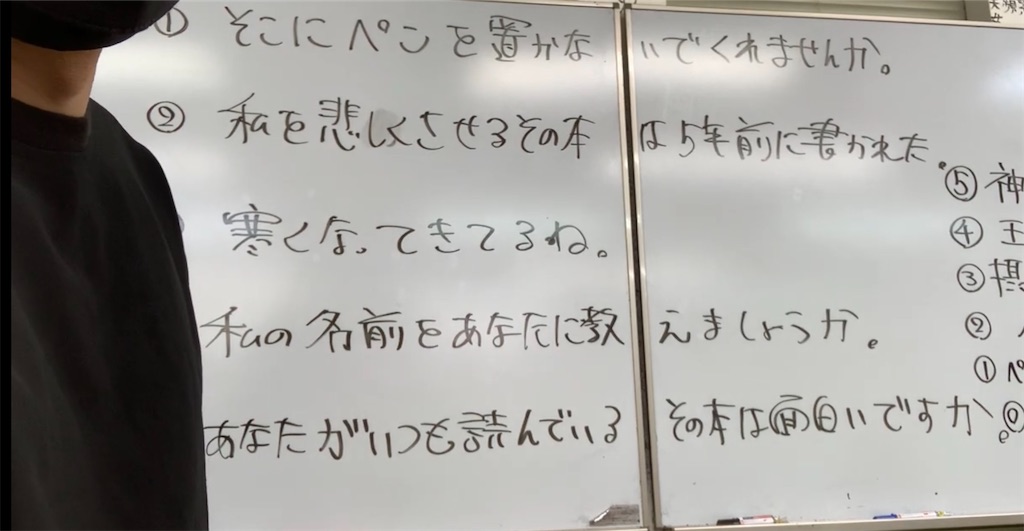 ① そこにペンを置かないでくれませんか。
② 私を悲しくさせるその本は5年前に書かれた。
寒くなってきてるね。
私の名前をあなたに教えましょうか。
あなたがいつも読んでいるその本は面白いですか。
⑤ 神
④ 王
③ 摂
②
① ペ
⓪